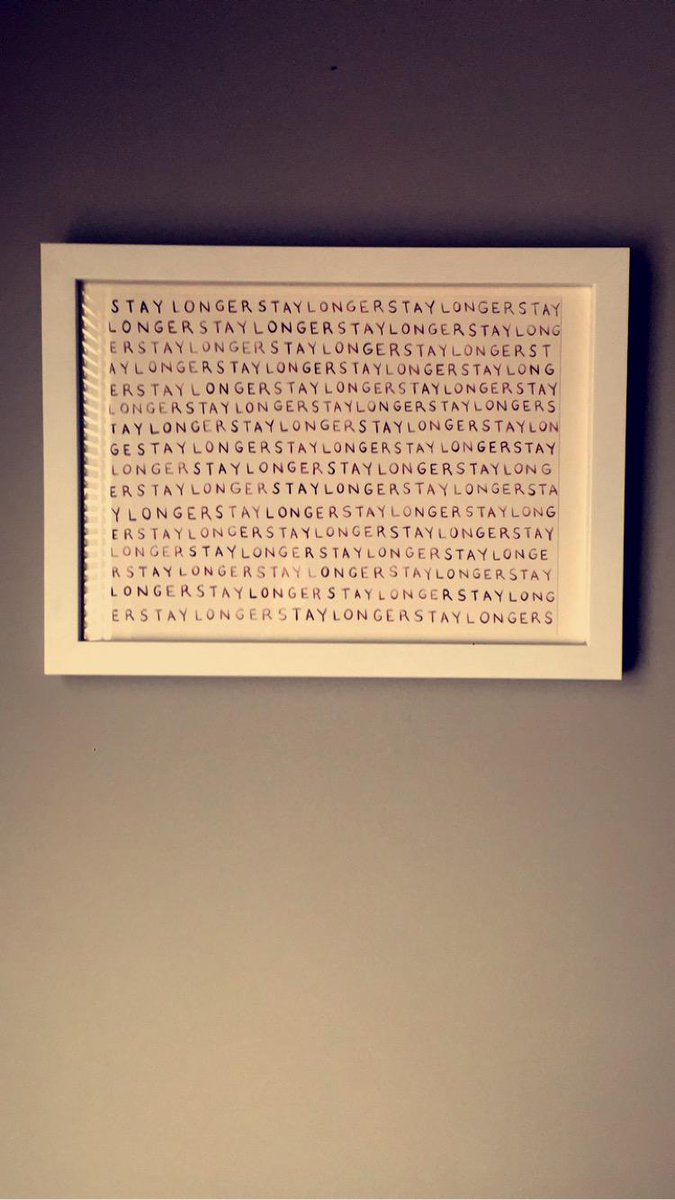 STAY LONGERSTAYLONGERSTAY LONGERSTAY
LONGERSTAY LONGERSTAYLONGERSTAYLONG
ERSTAYLONGERSTAYLONGERSTAYLONGERST
AYLONGERSTAYLONGERSTAYLONGERSTAYLONG
ERSTAY LONGERSTAYLONGERSTAYLONGERSTAY
LONGERSTAYLONGERSTAYLONGERSTAYLONGERS
TAYLONGERSTAYLONGERSTAYLONGERSTAYLON
GESTAYLONGERSTAYLONGERSTAYLONGERSTAY
LONGERSTAYLONGERSTAYLONGERSTAYLONG
ERSTAYLONGERSTAYLONGERSTAYLONGERSTA
Y LONGERSTAYLONGERSTAYLONGERSTAYLONG
ERSTAYLONGERSTAYLONGERSTAYLONGERSTAY
LONGERSTAYLONGERSTAYLONGERSTAYLONGE
RSTAYLONGERSTAYLONGERSTAYLONGERSTAY
LONGERSTAYLONGERSTAYLONGERSTAYLONG
ERSTAYLONGERSTAYLONGERSTAYLONGERS